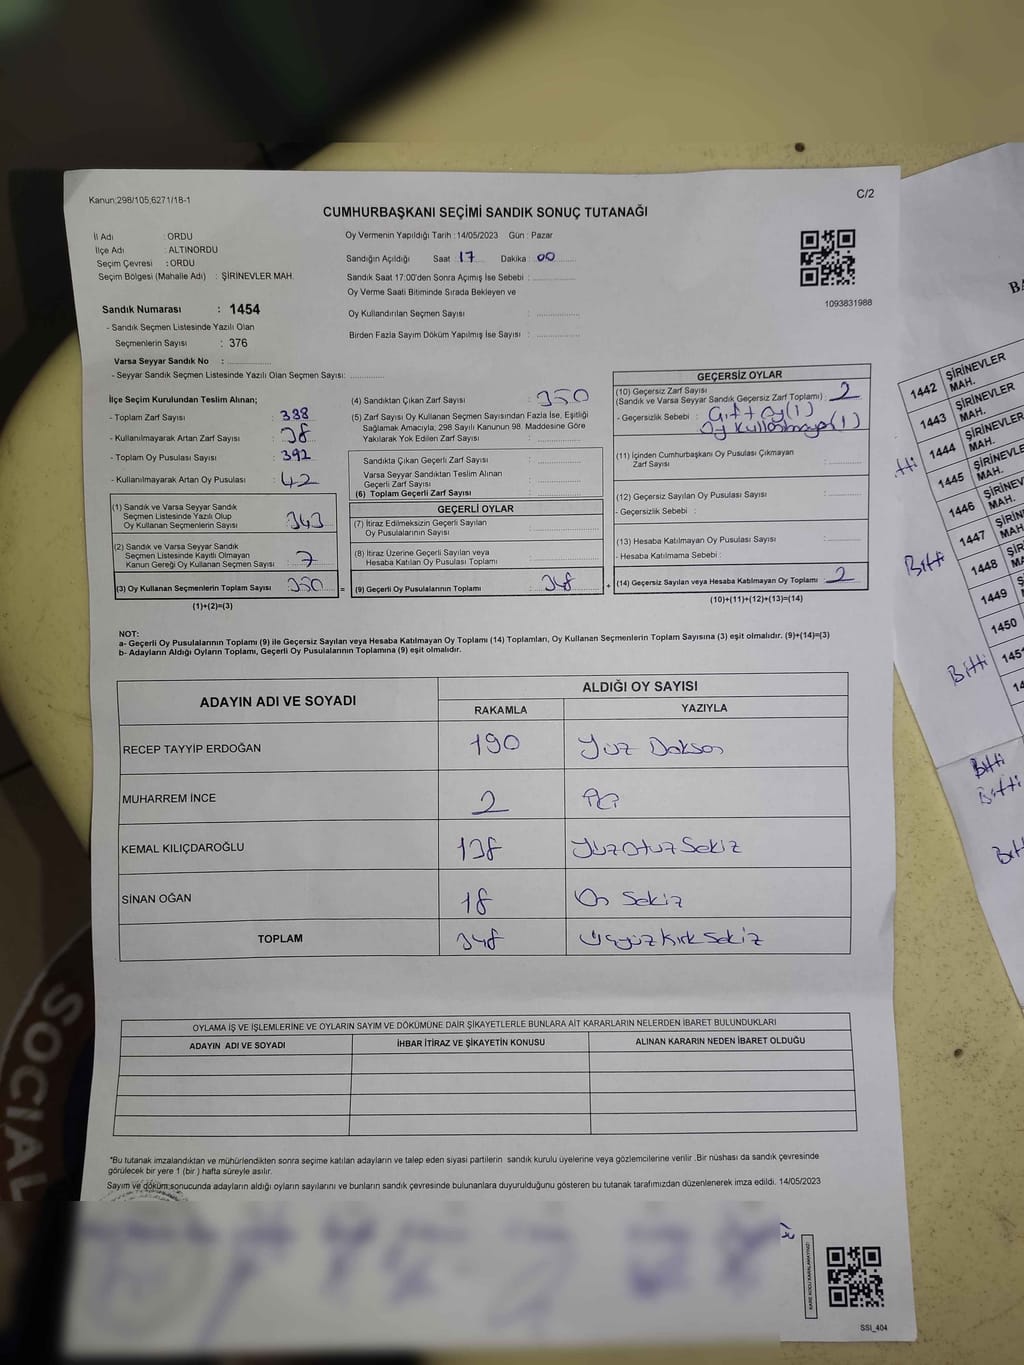 Kanun;298/105,6271/18-1
C/2
CUMHURBAŞKANI SEÇİMİ SANDIK SONUÇ TUTANAĞI
İl Adı : ORDU
İlçe Adı : ALTINORDU
Seçim Çevresi : ORDU
Seçim Bölgesi (Mahalle Adı) : ŞİRİNEVLER MAH.
Oy Vermenin Yapıldığı Tarih :14/05/2023 Gün : Pazar
Sandığın Açıldığı Saat : 17 Dakika : 00
Sandık Saat 17:00'den Sonra Açımış İse Sebebi :
Oy Verme Saati Bitiminde Sırada Bekleyen ve
Oy Kullandırılan Seçmen Sayısı :
Birden Fazla Sayım Döküm Yapılmış İse Sayısı :
1093831988
Sandık Numarası : 1454
- Sandık Seçmen Listesinde Yazılı Olan
Seçmenlerin Sayısı : 376
Varsa Seyyar Sandık No :
- Seyyar Sandık Seçmen Listesinde Yazılı Olan Seçmen Sayısı:
İlçe Seçim Kurulundan Teslim Alınan;
- Toplam Zarf Sayısı : 388
- Kullanılmayarak Artan Zarf Sayısı : 38
- Toplam Oy Pusulası Sayısı : 392
- Kullanılmayarak Artan Oy Pusulası : 42
(1) Sandık ve Varsa Seyyar Sandık
Seçmen Listesinde Yazılı Olup
Oy Kullanan Seçmenlerin Sayısı : 343
(2) Sandık ve Varsa Seyyar Sandık
Seçmen Listesinde Kayıtlı Olmayan
Kanun Gereği Oy Kullanan Seçmen Sayısı : 7
(3) Oy Kullanan Seçmenlerin Toplam Sayısı : 350
(1)+(2)=(3)
(4) Sandıktan Çıkan Zarf Sayısı : 350
(5) Zarf Sayısı Oy Kullanan Seçmen Sayısından Fazla İse, Eşitliği
Sağlamak Amacıyla; 298 Sayılı Kanunun 98. Maddesine Göre
Yakılarak Yok Edilen Zarf Sayısı :
Sandıkta Çıkan Geçerli Zarf Sayısı :
Varsa Seyyar Sandıktan Teslim Alınan
Geçerli Zarf Sayısı :
(6) Toplam Geçerli Zarf Sayısı :
GEÇERLİ OYLAR
(7) İtiraz Edilmeksizin Geçerli Sayılan
Oy Pusulalarının Sayısı :
(8) İtiraz Üzerine Geçerli Sayılan veya
Hesaba Katılan Oy Pusulaları Toplamı :
= (9) Geçerli Oy Pusulalarının Toplamı : 348 +
GEÇERSİZ OYLAR
(10) Geçersiz Zarf Sayısı
(Sandık ve Varsa Seyyar Sandık Geçersiz Zarf Toplamı) : 2
- Geçersizlik Sebebi : Çift oy(1)
Oy Kullanmaya(1)
(11) İçinden Cumhurbaşkanı Oy Pusulası Çıkmayan
Zarf Sayısı :
(12) Geçersiz Sayılan Oy Pusulası Sayısı :
- Geçersizlik Sebebi :
(13) Hesaba Katılmayan Oy Pusulası Sayısı :
- Hesaba Katılmama Sebebi :
(14) Geçersiz Sayılan veya Hesaba Katılmayan Oy Toplamı : 2
(10)+(11)+(12)+(13)=(14)
NOT:
a- Geçerli Oy Pusulalarının Toplamı (9) ile Geçersiz Sayılan veya Hesaba Katılmayan Oy Toplamı (14) Toplamları, Oy Kullanan Seçmenlerin Toplam Sayısına (3) eşit olmalıdır. (9)+(14)=(3)
b- Adayların Aldığı Oyların Toplamı, Geçerli Oy Pusulalarının Toplamına (9) eşit olmalıdır.
ADAYIN ADI VE SOYADI ALDIĞI OY SAYISI
RAKAMLA YAZIYLA
RECEP TAYYİP ERDOĞAN 190 Yüz Doksan
MUHARREM İNCE 2 İki
KEMAL KILIÇDAROĞLU 138 YüzOtuzSekiz
SİNAN OĞAN 18 On Sekiz
TOPLAM 348 ÜçyüzKırkSekiz
OYLAMA İŞ VE İŞLEMLERİNE VE OYLARIN SAYIM VE DÖKÜMÜNE DAİR ŞİKAYETLERLE BUNLARA AİT KARARLARIN NELERDEN İBARET BULUNDUKLARI
ADAYIN ADI VE SOYADI İHBAR İTİRAZ VE ŞİKAYETİN KONUSU ALINAN KARARIN NEDEN İBARET OLDUĞU
"Bu tutanak imzalandıktan ve mühürlendikten sonra seçime katılan adayların ve talep eden siyasi partilerin sandık kurulu üyelerine veya gözlemcilerine verilir .Bir nüshası da sandık çevresinde
görülecek bir yere 1 (bir ) hafta süreyle asılır.
Sayım ve döküm sonucunda adayların aldığı oyların sayılarını ve bunların sandık çevresinde bulunanlara duyurulduğunu gösteren bu tutanak tarafımızdan düzenlenerek imza edildi. 14/05/2023
KARE KODU KARALAMAYINIZ!
SSI_404
1442 ŞİRİNEVLER MAH.
1443 ŞİRİNEVLER MAH.
1444 ŞİRİNEVLER
1445
1446
1447
Bitti 1448
1449
1450
Bitti
Bitti
Bitti
SOCIAL